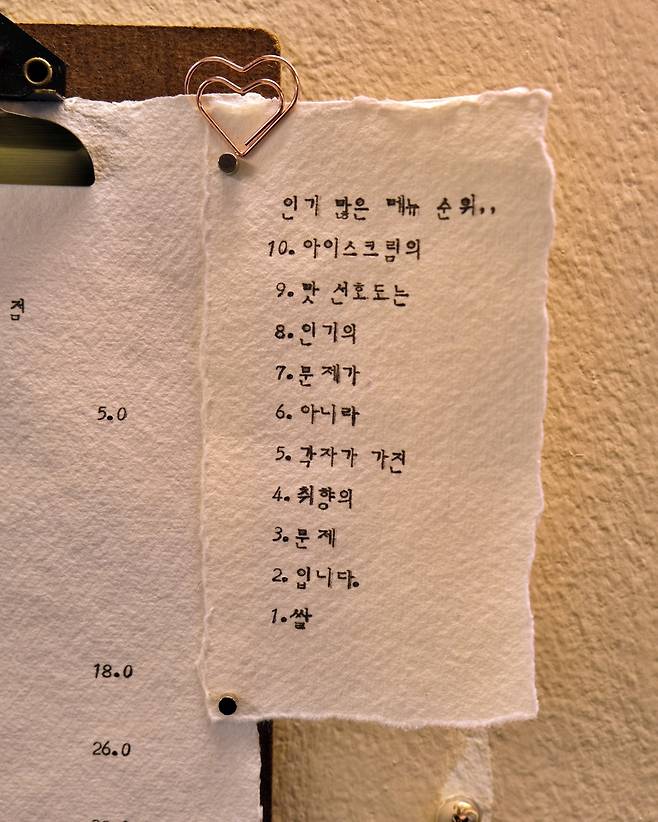 인기 많은 메뉴 순위,,
10. 아이스크림의
9. 맛 선호도는
8. 인기의
7. 문제가
6. 아니라
5. 각자가 가진
4. 취향의
3. 문제
2. 입니다.
1. 쌀
점
5.0
18.0
26.0